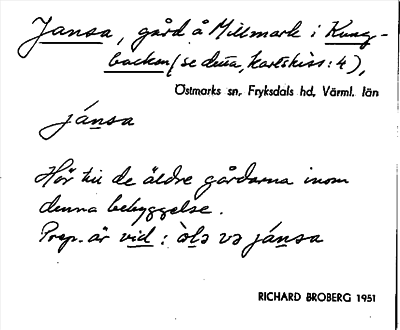 Jansa, gård å Millmark i Kung-
backen (se denna, kartskiss: 4),
Östmarks sn, Fryksdals hd, Värml. län
jánsa
Hör till de äldre gårdarna inom
denna bebyggelse.
Prep. är vid : və jánsa
RICHARD BROBERG 1951